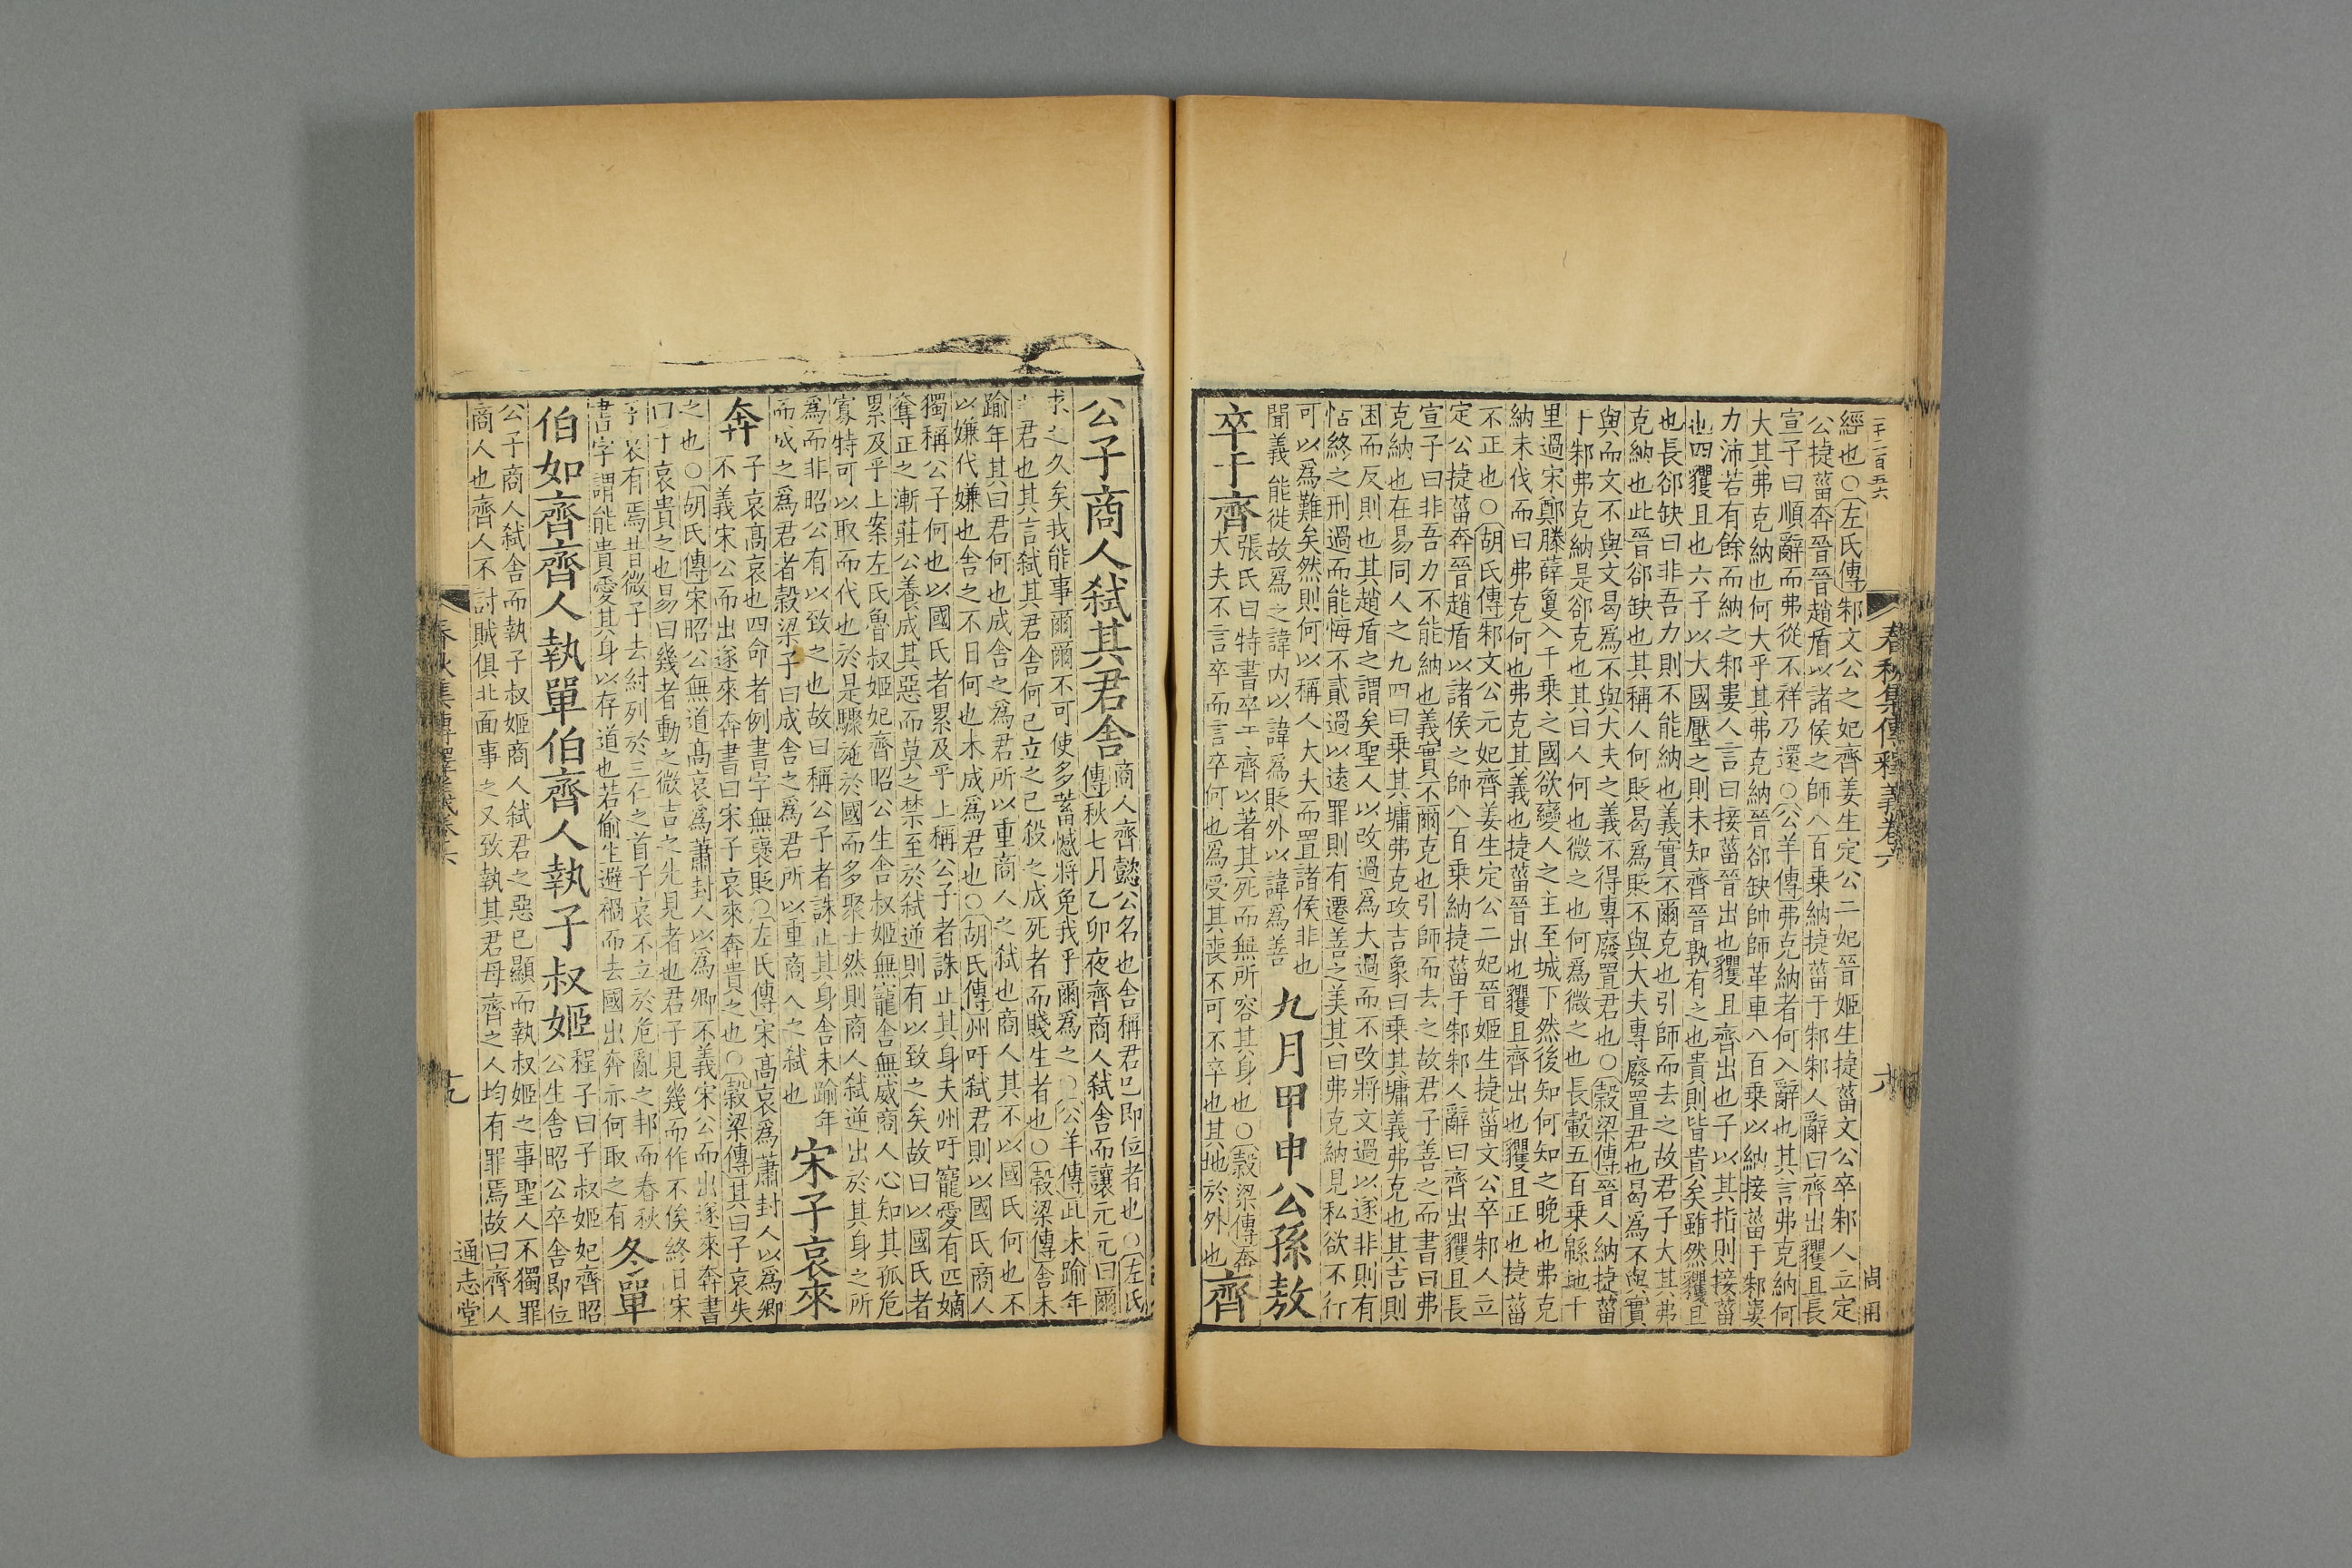 春秋集傳釋義卷六
經也○左氏傳邾文公之妃齊姜生定公二妃晉姬生捷菑文公卒邾人立定
公捷菑奔晉晉趙盾以諸侯之師八百乘納捷菑于邾邾人辭曰齊出貜且長
宣子曰順辭而弗從不祥乃還○公羊傳弗克納者何入辭也其言弗克納何
大其弗克納也何大乎其弗克納晉郤缺帥師革車八百乘以納接菑于邾婁
力沛若有餘而納之邾婁人言曰接菑晉出也貜且齊出也子以其指則接菑
也四貜且也六子以大國壓之則未知齊晉孰有之也貴則皆貴矣雖然貜且
也長郤缺曰非吾力則不能納也義實不爾克也引師而去之故君子大其弗
克納也此晉郤缺也其稱人何貶曷為貶不與大夫專廢置君也曷為不與實
與而文不與文曷為不與大夫之義不得專廢置君也○穀梁傳晉人納捷菑
于邾弗克納是郤克也其曰人何也微之也何為微之也長轂五百乘緜地千
里過宋鄭滕薛夐入千乘之國欲變人之主至城下然後知何知之晚也弗克
納未伐而曰弗克何也弗克其義也捷菑晉出也貜且齊出也貜且正也捷菑
不正也○胡氏傳邾文公元妃齊姜生定公二妃晉姬生捷菑文公卒邾人立
定公捷菑奔晉趙盾以諸侯之師八百乘納捷菑于邾邾人辭曰齊出貜且長
宣子曰非吾力不能納也義實不爾克也引師而去之故君子善之而書曰弗
克納也在易同人之九四曰乘其墉弗克攻吉象曰乘其墉義弗克也其吉則
困而反則也其趙盾之謂矣聖人以改過為大過而不改將文過以遂非則有
怙終之刑過而能悔不貳過以遠罪則有遷善之美其曰弗克納見私欲不行
可以為難矣然則何以稱人大夫而置諸侯非也
聞義能徙故為之諱内以諱為貶外以諱為善
九月甲申公孫敖
卒于齊
張氏曰特書卒于齊以著其死而無所容其身也○穀梁傳奔
大夫不言卒而言卒何也為受其喪不可不卒也其地於外也
齊
公子商人弑其君舍
商人齊懿公名也舍稱君已即位者也○左氏
傳秋七月乙卯夜齊商人弑舍而讓元元曰爾
求之久矣我能事爾爾不可使多蓄憾將免我乎爾為之○公羊傳此未踰年
君也其言弑其君舍何已立之已殺之成死者而賤生者也○穀梁傳舍未
踰年其曰君何也成舍之為君所以重商人之弑也商人其不以國氏何也不
以嫌代嫌也舍之不日何也未成為君也○胡氏傳州吁弑君則以國氏商人
獨稱公子何也以國氏者累及乎上稱公子者誅止其身夫州吁寵愛有匹嫡
奪正之漸莊公養成其惡而莫之禁至於弑逆則有以致之矣故曰以國氏者
累及乎上案左氏魯叔姬妃齊昭公生舍叔姬無寵舍無威商人心知其孤危
寡特可以取而代也於是驟施於國而多聚士然則商人弑逆出於其身之所
為而非昭公有以致之也故曰稱公子者誅止其身舍未踰年
而成之為君者穀梁子曰成舍之為君所以重商人之弑也
宋子哀來
奔
子哀高哀也四命者例書字無襃貶○左氏傳宋高哀為蕭封人以為卿
不義宋公而出遂來奔書曰宋子哀來奔貴之也○穀梁傳其曰子哀失
之也○胡氏傳宋昭公無道高哀為蕭封人以為卿不義宋公而出遂來奔書
曰子哀貴之也易曰幾者動之微吉之先見者也君子見幾而作不俟終日宋
子哀有焉昔微子去紂列於三仁之首子哀不立於危亂之邦而春秋
書字謂能貴愛其身以存道也若偷生避禍而去國出奔亦何取之有
冬單
伯如齊齊人執單伯齊人執子叔姬
程子曰子叔姬妃齊昭
公生舍昭公卒舍即位
公子商人弑舍而執子叔姬商人弑君之惡已顯而執叔姬之事聖人不獨罪
商人也齊人不討賊俱北面事之又致執其君母齊之人均有罪焉故曰齊人
春秋集傳釋義卷六
十九
通志堂